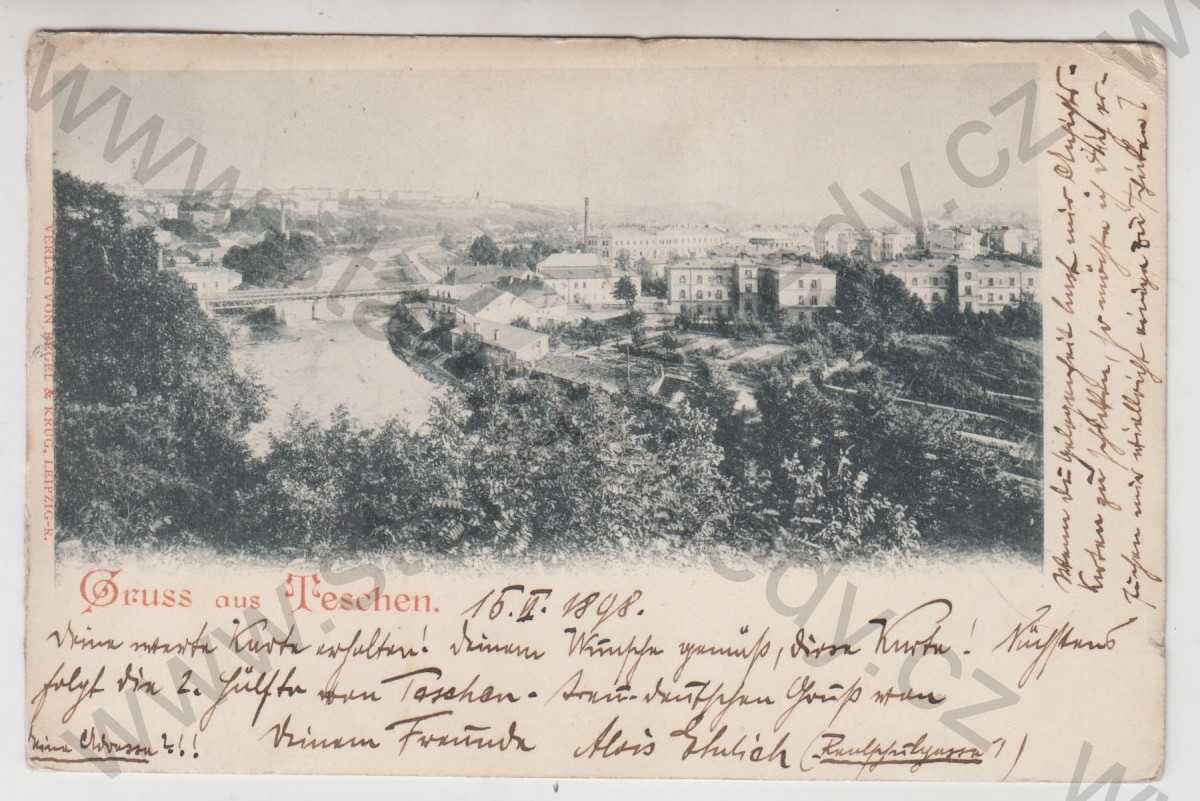 VERLAG VON REGEL & KRUG, LEIPZIG-R.
Gruss aus Teschen.
16.II.1898.
Deine werte Karte erhalten! Deinem Wunsche gemäß, diese Karte! Nächstens
folgt die 2. Hälfte von Teschen - treu-deutschen Gruß von
Deinem Freunde Alois Ehrlich (Realschulgasse 1)
Deine Adresse ?!!
Wenn du Gelegenheit hast mir Ansichts-
Karten zu schicken, so möchte ich Dich er-
suchen mir vielleicht einige zu schicken!